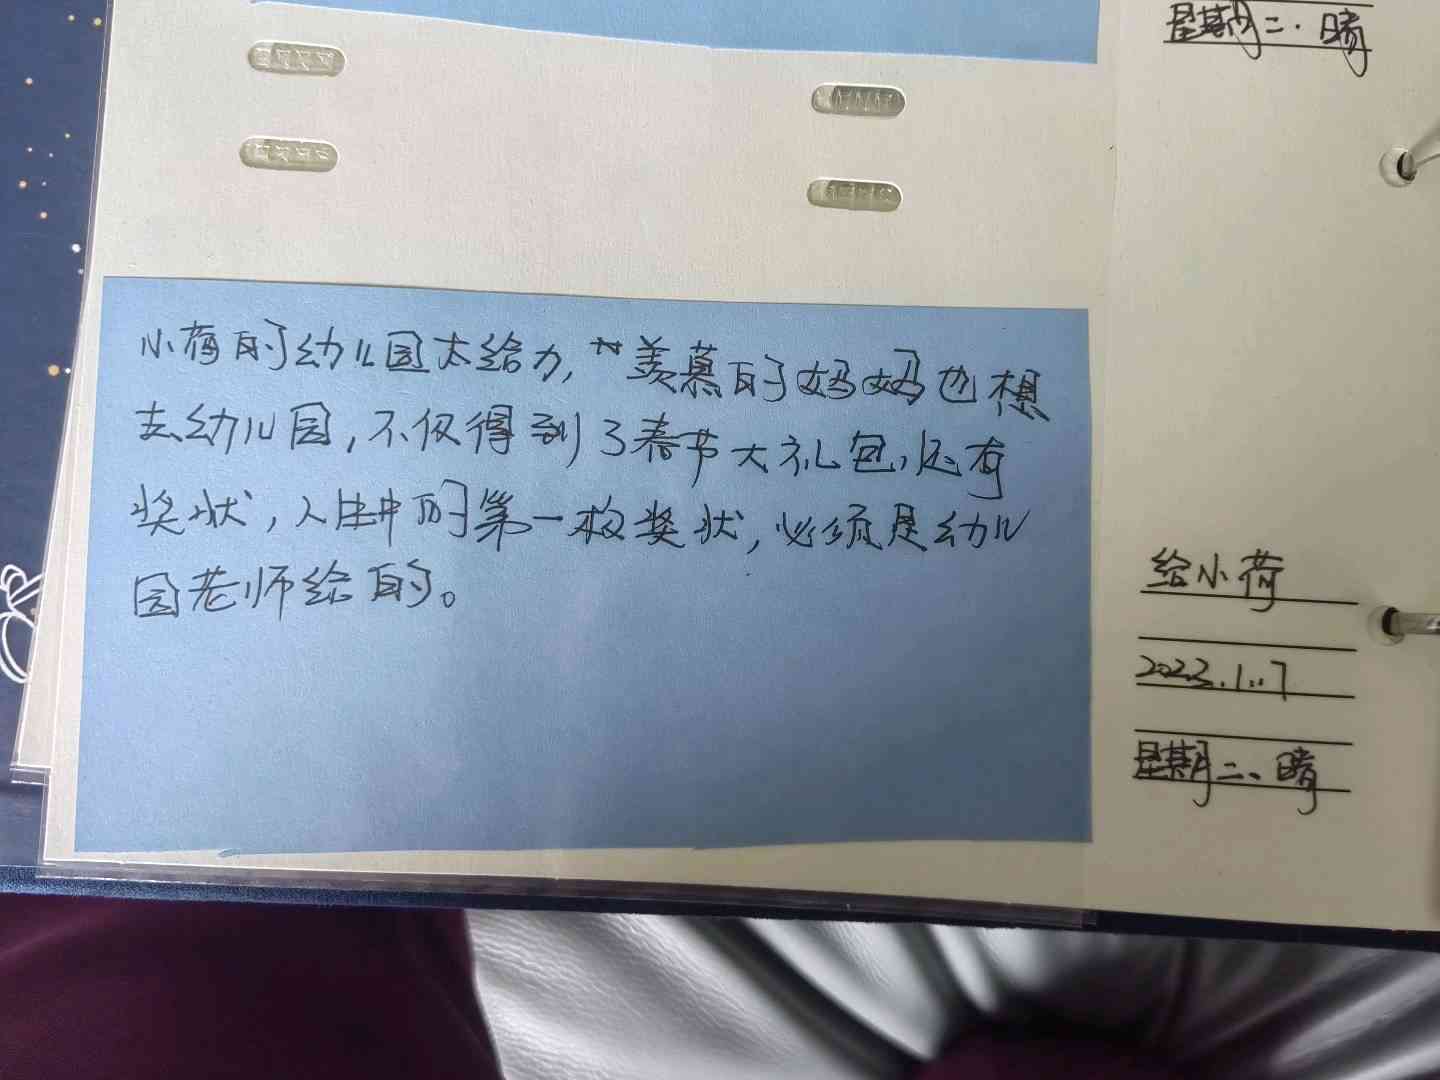 星期二·晴
小荷的幼儿园太给力,羡慕的妈妈也想
去幼儿园,不仅得到了春节大礼包,还有
奖状,人生中的第一枚奖状,必须是幼儿
园老师给的。
给小荷
星期二、晴